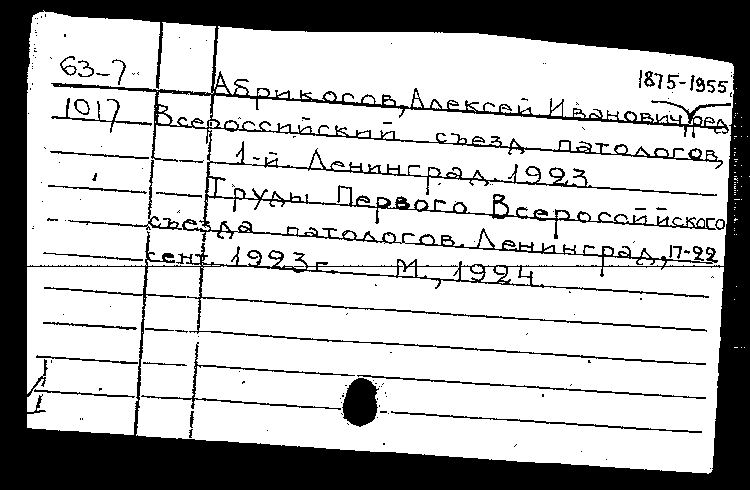 1875-1955
63-7 Абрикосов, Алексей Иванович, ред.
1017 Всероссийский съезд патологов,
1-й. Ленинград. 1923
Труды Первого Всероссийского
съезда патологов. Ленинград, 17-22
сент. 1923 г. М., 1924.